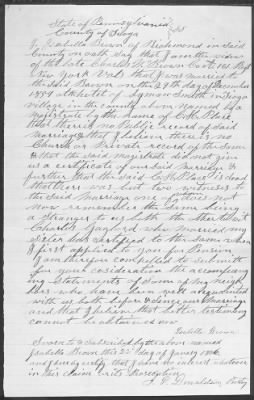 State of Pennsylvania
County of Tioga } SS
I Isabella Brown of Richmond in said
County on oath say that I am the widow
of the late Charles H. Brown Co.
New York Vols that I was married to
the said Brown on the 29th day of December
1859 at the Hotel of Lyman Smith in Tioga
village in the county above named by a
Magistrate by the name of C H Place
that there is no Public record of said
Marriage that I believe there is no
Church or Private record of the same
& that the said magistrate did not give
us a certificate of our said Marriage &
further that the said C H Place is dead
that there was but two witnesses to
the said Marriage one of whom I do not
now remember the same being
a stranger to us both the other was
Charles Gaylord who married my
sister and certified to the same when
I first applied for Pension
I am therefore compelled to submit
for your consideration the accompany
ing statements of some of my neigh
bors who have been well acquainted
with us both before & since our Marriage
and that I believe that better testimony
cannot be obtained now
Isabella Brown
Sworn to & subscribed by the above named
Isabella Brown this 22 day of
and I hereby certify that I have no interest
in this claim or its Prosecution